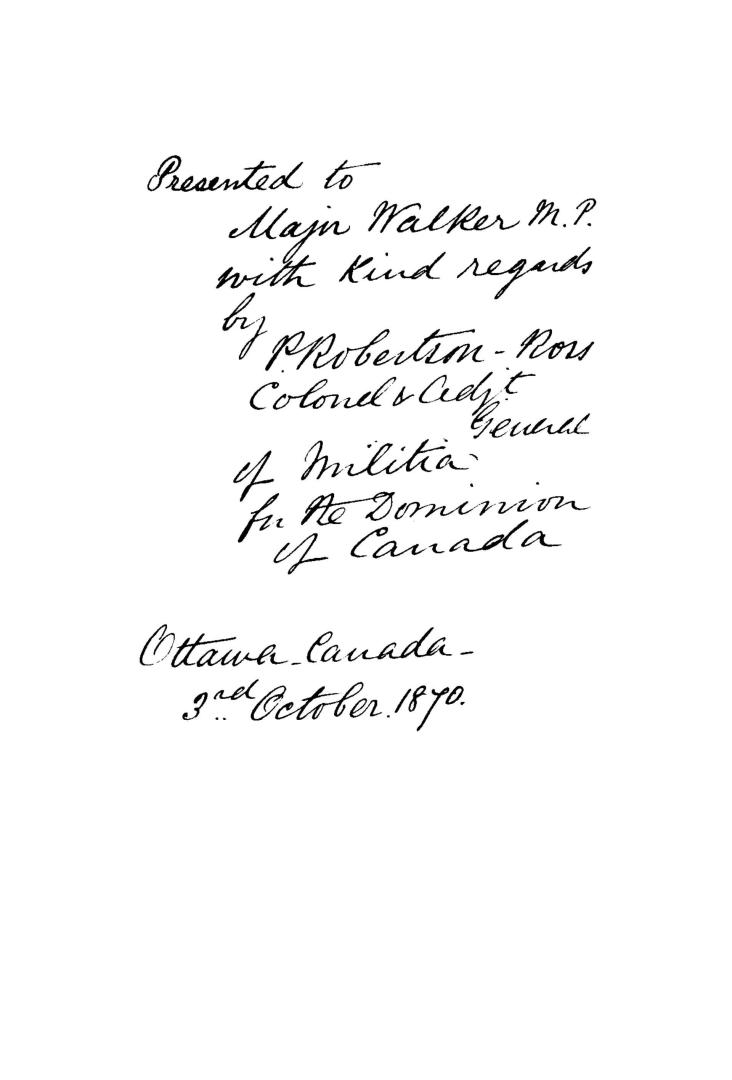 Presented to
Major Walker M.P.
with kind regards
by
P. Robertson-Ross
Colonel & Adjt
General
of Militia
for the Dominion
of Canada
Ottawa-Canada-
3rd October. 1870.